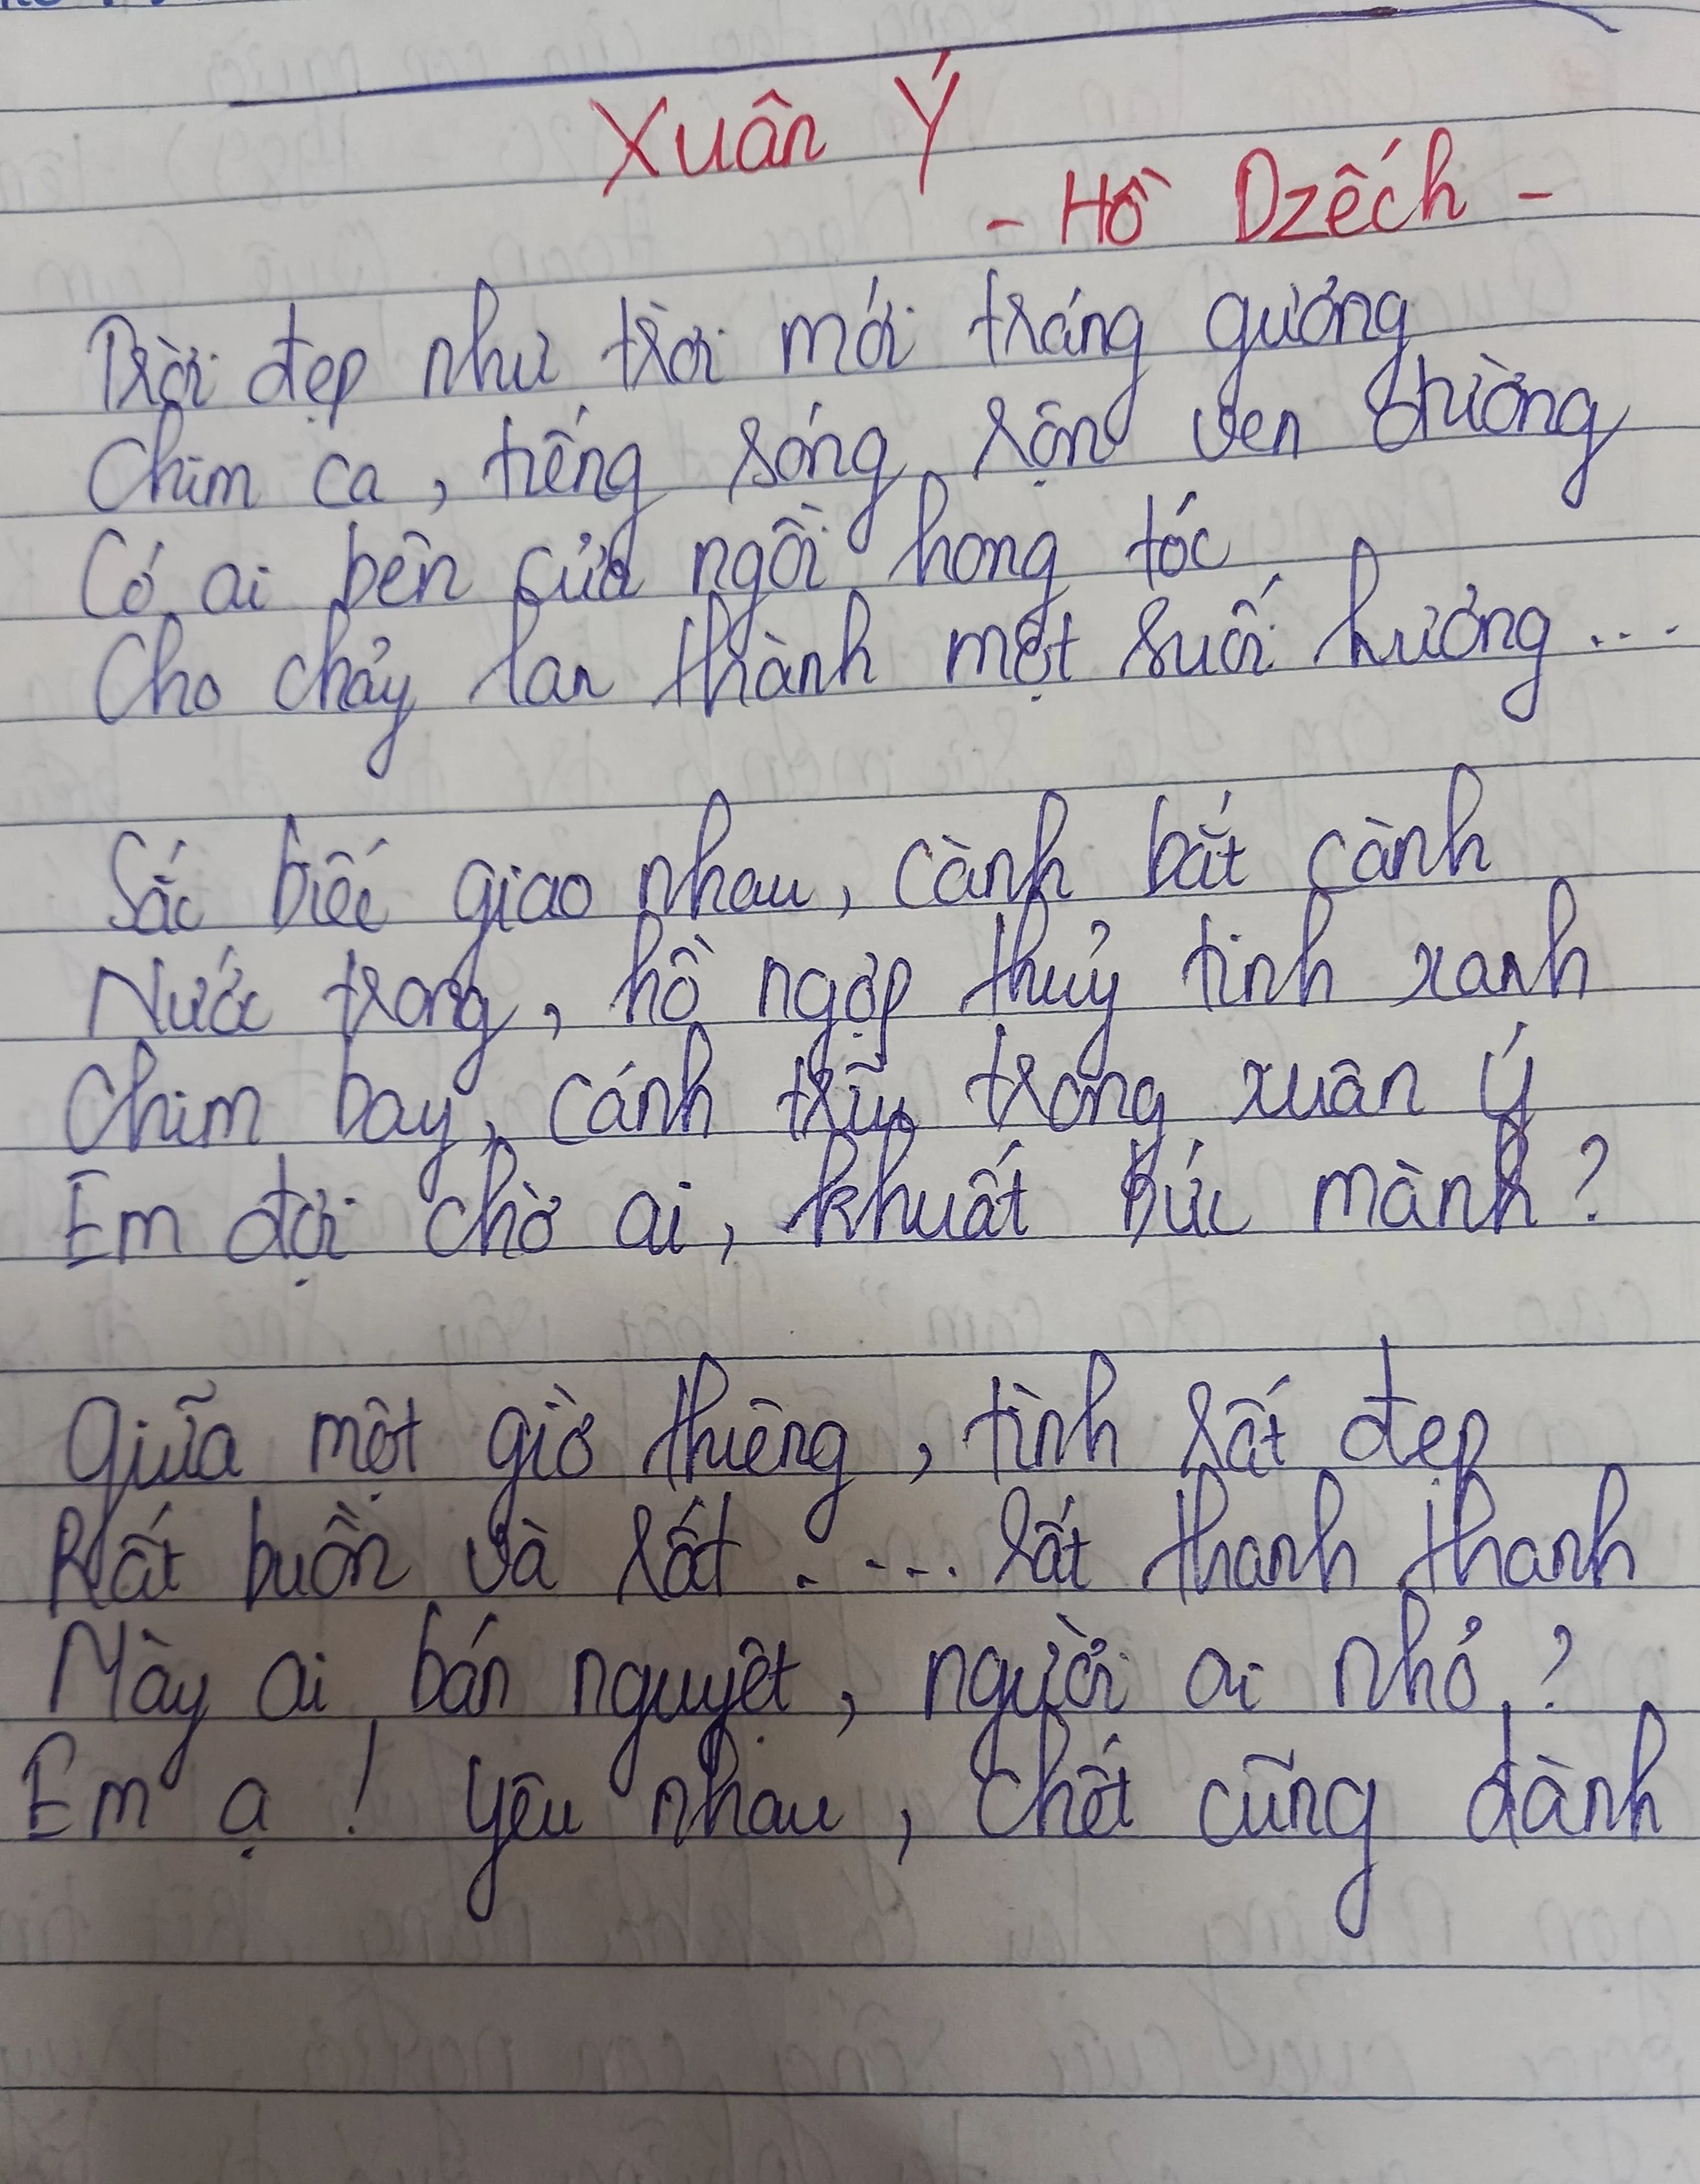 Xuân Ý
- Hồ Dzếch -
Trời đẹp như trời mới tráng gương
Chim ca, tiếng sóng rộn ven đường
Có ai bên cửa ngồi hong tóc
Cho chảy lan thành một suối hương...
Sắc biếc giao nhau, cành bắt cành
Nước trong, hồ ngợp thuỷ tinh xanh
Chim bay, cánh trĩu trong xuân ý
Em đợi chờ ai, khuất bức mành?
Giữa một giờ thiêng, tình rất đẹp
Rất buồn và rất .... rất thanh thanh
Mày ai bán nguyệt, người ai nhỏ?
Em ạ! Yêu nhau, chết cũng đành